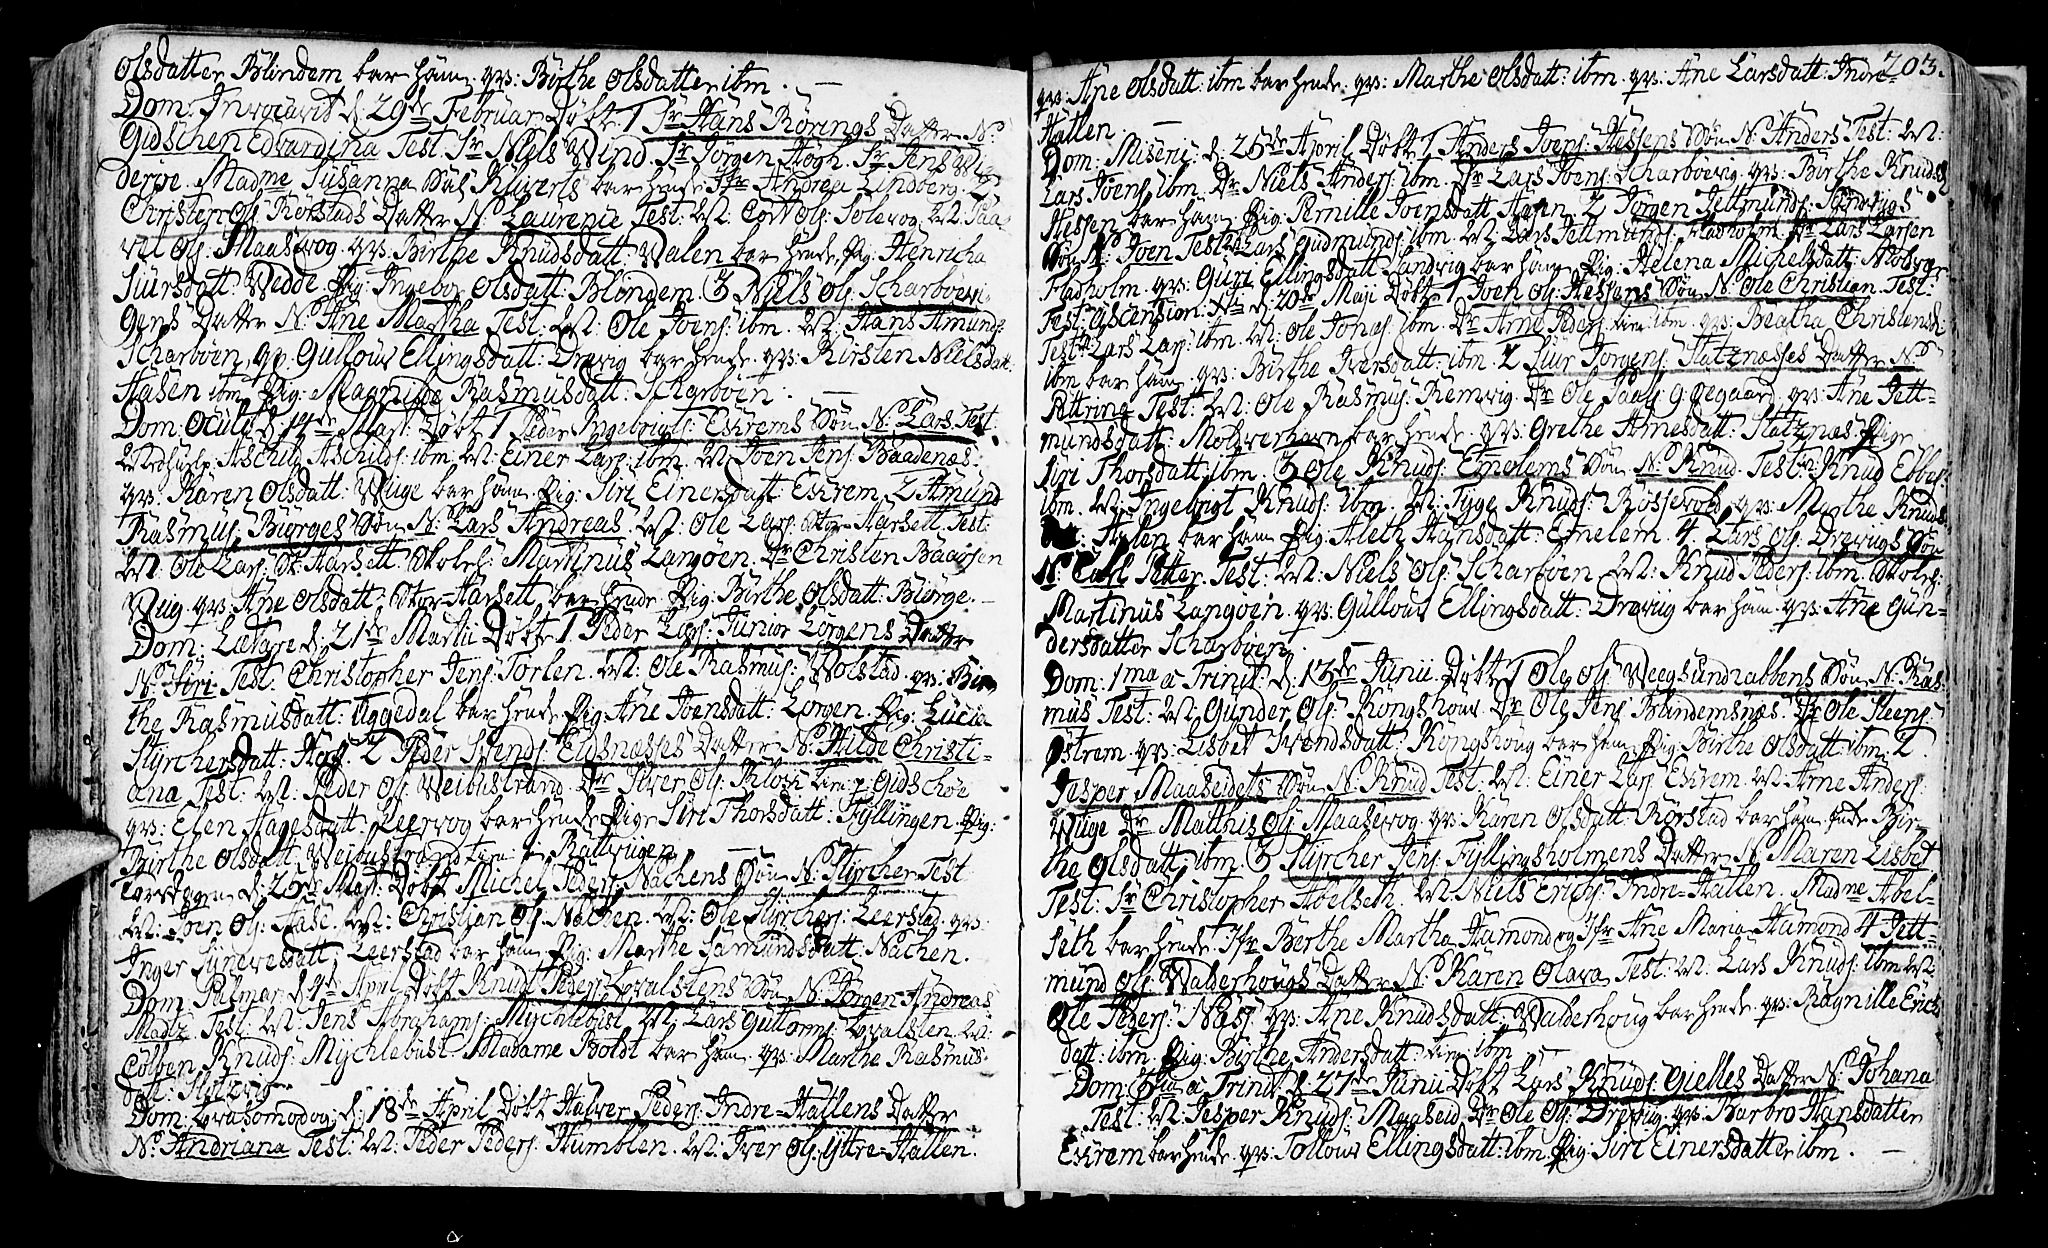 Olsdatter Blindem bar ham. qv: Birthe Olsdatter ibm.
Dom: Invocavit d: 29de Februar Døbt 1 Sr Hans Rørings Datter N:
Gidschen Edvardina Test. Sr Niels Wind. Sr Jørgen Høgh. Sr Jens
Madme Susanna Sal: bar hende Jfr Andrea Lindberg. 2
Christen Ols: Rørstads Datter N: Laurense Test: Wt: Ols: Solevog. Wt: Paa-
vel Ols: Maasevog. qv: Birthe Knudsdatt: Walen bar hende. Pig: Henricha
Siursdatt: Wedde. Pig: Ingebor Olsdatt: Blindem. 3 Niels Ols: Scharbøevi-
gens Datter N: Ane Martha Test: Wt: Ole Joens: ibm. Wt: Hans Amunds:
Scharbøen, qv: Gullow Ellingsdatt: Drevig bar hende. qv: Kirsten Nielsdatt:
Hasen ibm. Pig: Magnilde Rasmusdatt: Scharbøen.
Dom: Oculi d: 14de Mart: Døbt 1 Peder Ingebrigts: Eskrems Søn N: Lars. Test:
Aschild Aschilds: ibm. Wt: Einer Lars: ibm. Wt: Joen Jens: Baadenæs.
qv: Karen Olsdatt: Wiige bar ham. Pig: Siri Einersdatt Eskrem. 2 Amund
Rasmus: Biørges Søn N: Lars Andreas. Wt: Ole Lars: Stor-Harsett. Test:
Wt: Ole Lars: St: Harsett. Skoleh: Martinus Langøen. Dr Christen Baarsen
Wiig. qv: Ane Olsdatt: Stor-Harsett bar hende. Pig: Birthe Olsdatt: Biørge.
Dom: Lætare d: 21de Martii Døbt 1 Peder Lars: Junior Lorgens Datter
N: Siri Test. Christopher Jens: Torlen. Wt: Ole Rasmus: Wolstad. qv: Bir-
the Rasmusdatt: Eggedal bar hende. Pig Ane Joensdatt: Lorgen. Pig: Lucia
Styrchersdatt: 2 Peder Svends: Eidsnæsses Datter N: Hilde Christi-
ana Test: Wt: Peder Ols: Weibustrand. Dr Siver Ols: Gidschøe
qv: Elen Hagesdatt: Leervog bar hende. Pige Siri Thorsdatt: Fyllingen. Pig:
Birthe Olsdatt: Weibustrand
Torsdagen d: 25de Mart: Døbt Michel Peders: Nachens Søn N: Styrcher Test
Wt: Joen Ols: Aase. Wt: Christian Ols: Nachen. Wt: Ole Styrchers: Leerstad. qv:
Inger Synevesdatt: Leerstad bar ham. Pig: Marthe Samundsdatt: Nachen.
Dom: Palmar: d: 4de April Døbt Knud Peders: Qvalstens Søn N: Jørgen Andreas
Madtz Test: Wt: Jens Abrahams: Mychlebust. Wt: Lars Guttorms: Qvalsten. Wt:
Colben Knuds: Mychlebust. Madame Boldt bar ham. qv: Marthe Rasmus-
datt:
Dom: Qvasimodog: d: 18de April Døbt Halver Peders: Indre-Hallens Datter
N: Andriana Test: Wt: Peder Peders: Humblen. Wt: Iver Ols: Yttre-Hallen.
203.
qv: Ane Olsdatt: ibm bar hende. qv: Marthe Olsdatt: ibm. qv: Ane Larsdatt: Indre-
Hallen.
Dom: Miseric: d: 25de April Døbt 1 Anders Joens: Hessens Søn N: Anders Test: Wt:
Lars Joens: ibm. Dr Niels Anders: ibm. Dr Lars Joens: Scharbøevig. qv: Birthe Knudsd:
Hessen bar ham. Pig: Pernille Joensdatt Hasen. 2 Jørgen Tettmunds: Sandvigs
Søn N: Joen Test: Lars Gudmunds: ibm. Wt: Lars Tettmunds: Fladholm. Dr Lars Larsen
Fladholm. qv: Guri Ellingsdatt Sandvig bar ham. Pig: Helena Michelsdatt:
Fest: Ascension: Xti d: 20de Maji Døbt 1 Joen Ols: Hessens Søn N: Ole Christian. Test:
Lars Lars: ibm. Wt: Ole Jonas: ibm. Dr Arne Peders: ibm. qv: Beatha Christensd:
ibm bar ham. qv: Birthe Iversdatt: ibm. 2 Siur Jørgens: Slatznæsses Datter N:
Pettrine Test: Wt: Ole Rasmus: Remvig. Dr Ole Paals: Ødegaard. qv: Ane Tett-
mundsdatt: Molwerhavn bar hende. qv: Grethe Arnesdatt: Slatznæs Pige
Siri Thorsdatt: ibm. 3 Ole Knuds: Emelems Søn N: Knud. Test: Knud Ebbes:
ibm. Wt: Ingebrigt Knuds: ibm. Wt: Tyge Knuds: Røssevold. qv: Marthe Knuds-
Hasen bar ham. Pig Aleth Hansdatt: Emelem. 4 Lars Ols: Drevigs Søn
N: Carl Petter. Test: Wt: Niels Ols: Scharbøen. Wt: Knud Peders: ibm. Skoleh:
Martinus Langøen. qv: Gullow Ellingsdatt: Drevig bar ham. qv: Ane Gun-
dersdatter Scharbøen.
Dom: 1ma a Trinit: d: 13de Junii Døbt 1 Ole Ols: Weegsundnabbens Søn N: Ras-
mus Test: Wt: Gunder Ols: Kongshoug. Dr Ole Jens: Blindemsnæs. Dr Ole Steens:
Østrem. qv: Lisbet Svendsdatt: Kongshoug bar ham. Pig: Birthe Olsdatt: ibm. 2
Jesper Maaseidets Søn N: Knud Test: Wt: Einer Lars: Eskrem. Wt: Arne Anders:
Wiige Dr Matthis Ols: Maasevog. qv: Karen Olsdatt: Rørstad bar ham. Pig: Bir-
the Olsdatt: ibm. 3 Styrcher Jens: Fyllingsholmens Datter N: Maren Lisbet
Test: Sr Christopher Abelseth. Wt: Niels Erichs: Indre-Hallen. Madme Abel-
seth bar hende. Jfr Birthe Martha Aumond og Jfr Ane Maria Aumond 4 Tett-
mund Ols: Walderhougs Datter N: Karen Olava. Test: Wt: Lars Knuds: ibm. Wt:
Ole Peders: Næss. qv: Ane Knudsdatt: Walderhoug bar hende. qv: Ragnille Erichs
datt: ibm. Pig: Birthe Andersdatt: ibm
Dom: 3tia a Trinit: d: 27de Junii Døbt Lars Knuds: Gielles Datter N: Johana
Test: Wt: Jesper Knuds: Maaseid. Dr Ole Ols: Drevig. qv: Barbro Hansdatter
Eskrem bar hende. qv: Tollow Ellingsdatt: ibm. Pig: Siri Einersdatter ibm.